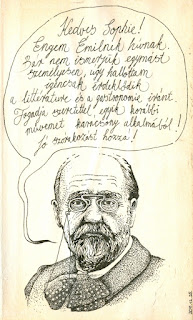 Kedves Sophie!
Engem Emilnek hívnak.
Bár nem ismerjük egymást
személyesen, úgy hallottam
igencsak érdeklődik
a littérature és a gastronomie iránt.
Fogadja szeretettel egyik korábbi
művemet karácsony alkalmából!
Jó szórakozást hozzá!